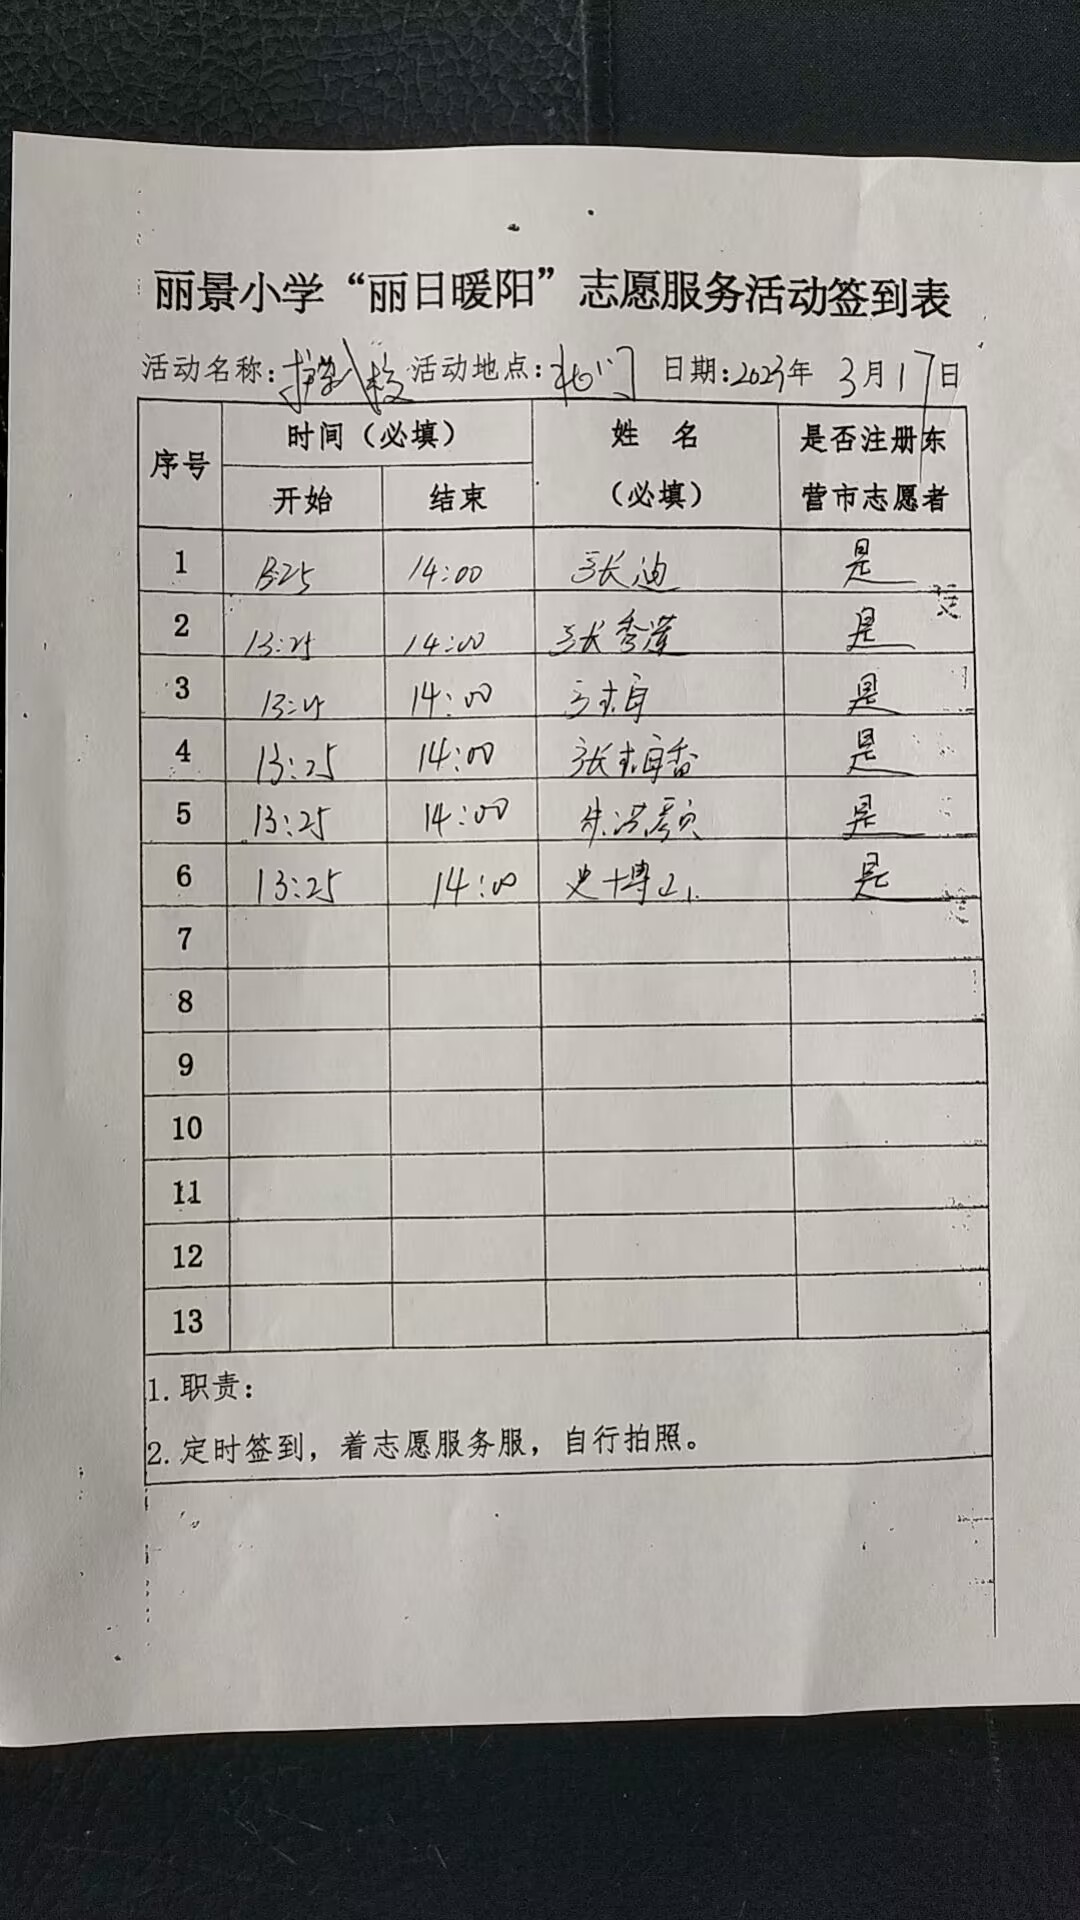 丽景小学“丽日暖阳”志愿服务活动签到表
活动名称:护学入校 活动地点:北门 日期:2023年 3月17日
序号 时间（必填） 姓 名（必填） 是否注册东营市志愿者
开始 结束
1 13:25 14:00 张迪 是
2 13:25 14:00 张秀滢 是
3 13:25 14:00 是
4 13:25 14:00 是
5 13:25 14:00 是
6 13:25 14:00 史博 是
7
8
9
10
11
12
13
1.职责：
2.定时签到，着志愿服务服，自行拍照。